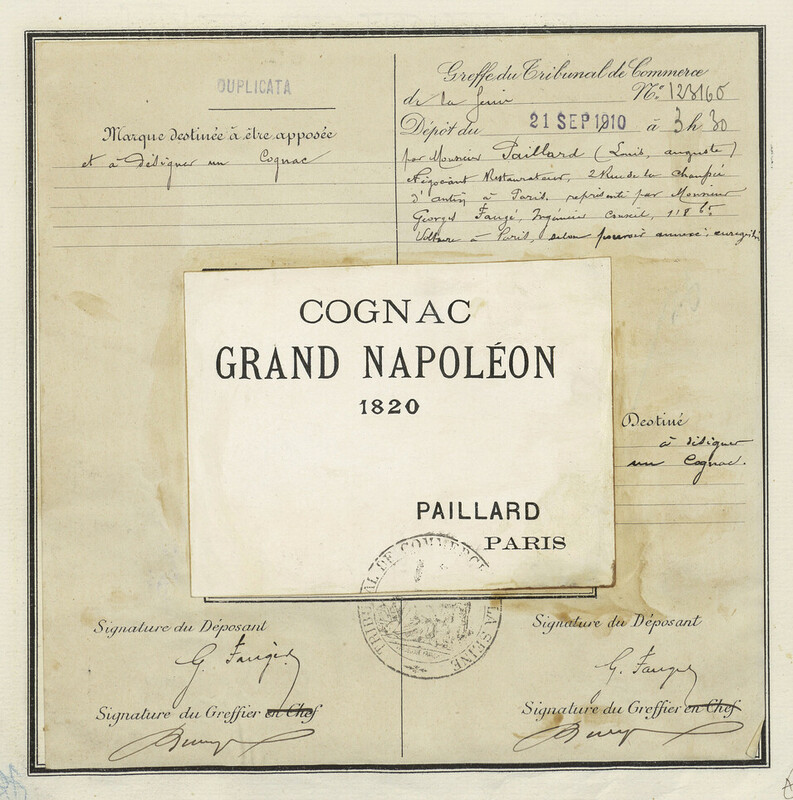 DUPLICATA
Marque destinée à être apposée
et à désigner un Cognac
Greffe du Tribunal de Commerce
de la Seine N° 123160
Dépôt du 21 SEP 1910 à 3 h 30
par Monsieur Paillard (Louis, auguste)
Négociant Restaurateur, 2 Rue de la chaussée
d'antin à Paris. représenté par Monsieur
Georges Faugé, Ingénieur Conseil, 118 bd
Voltaire à Paris, selon pouvoir annexé, enregistré
COGNAC
GRAND NAPOLÉON
1820
PAILLARD
PARIS
Destiné
à désigner
un Cognac.
TRIBUNAL DE COMMERCE LA SEINE
Signature du Déposant
G. Faugé
Signature du Greffier en Chef
Signature du Déposant
G. Faugé
Signature du Greffier en Chef